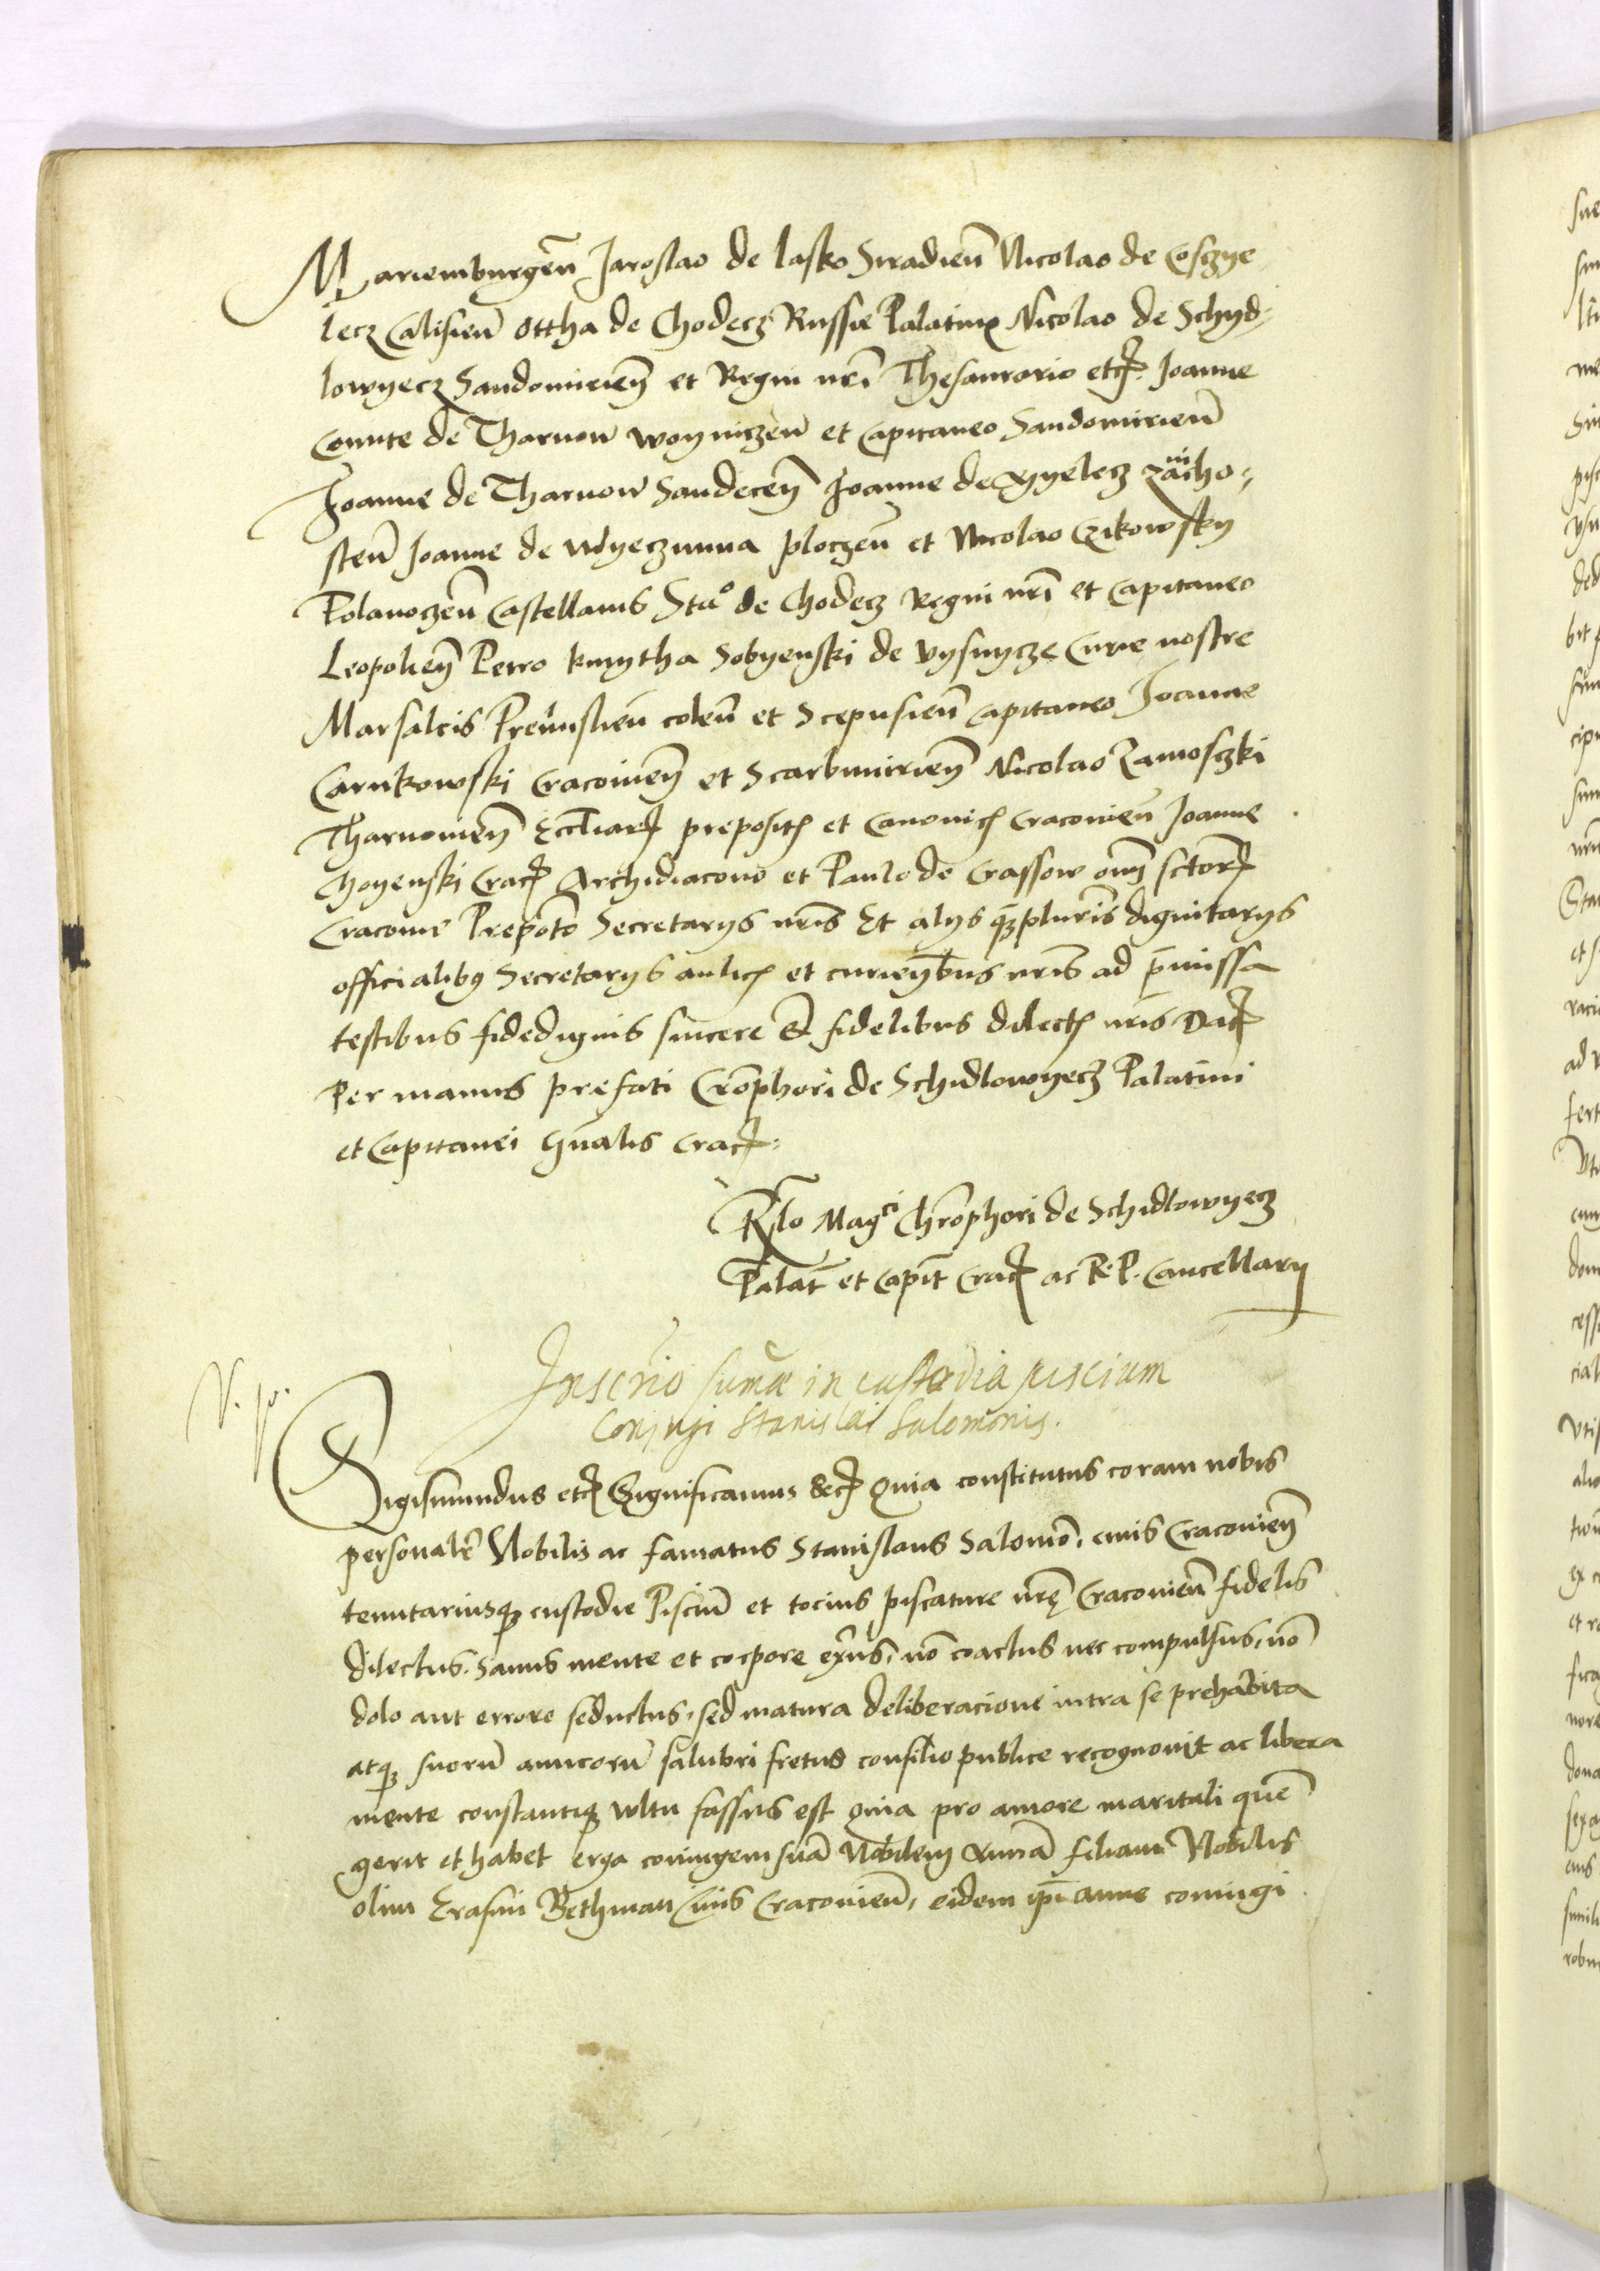 Mariemburgen̄ Jaroslao de lasko Siradien̄ Nicolao de Cosczye
lecz Calisien̄ Ottha de Chodecz Russie Palatinis Nicolao de Schyd-
lowyecz Sandomirien̄ et Regni nr̄i Thesaurario etc. Joanne
Comite de Tharnow woyniczen̄ et Capitaneo Sandomirien̄
Joanne de Tharnow Sandecen̄ Joanne de Pyelecz zawicho-
sten̄ Joanne de Wyeczwna ploczen̄ et Nicolao Czikowsky
Polanoczen̄ Castellanis Stao de Chodecz Regni nr̄i et Capitaneo
Leopolien̄ Petro kmytha Sobyenski de Vysnycze Curie nostre
Marsalcis Premislien̄ colen̄ et Scepusien̄ Capitaneo Joanne
Carnkowski Cracovien̄ et Scarbimirien̄ Nicolao Zamosczki
Tharnovien̄ Eccl̄iar. prepositis et Canonicis Cracovien̄ Joanne
Choyenski Crac. Archidiacono et Paulo de Crassow om̄ sctor.
Cracovie Prepōto Secretarys nr̄is Et alys q̄pluris dignitarys
officialibus Secretarys aulicis et curien̄bus nr̄is ad p̄missa
testibus fidedignis sincere et fidelibus dilectis nr̄is Dat.
per manus prefati Crōphori de Schidlowyecz Palatini
et Capitanei Gn̄alis Crac.
R̄lo Magci Chrōphori de Schidlowyecz
Palat̄ et Capit̄ Crac. ac R. P. Cancellary
Inscr̄io sum̄æ in custodia piscium
Conjugi Stanislai Salomonis.
Sigismundus etc. Significamus etc. Quia constitutus coram nobis
personalr̄ Nobilis ac famatus Stanislaus Salomō, civis Cracovien̄
tenutariusq custodie Pisciū et tocius piscature nrę Cracovien̄ fidelis
dilectus. Sanus mente et corpore ex̄ns, nō coactus nec compulsus, nō
dolo aut errore seductus, sed matura deliberacione intra se prehabita
atq suorū amicorū salubri fretus consilio publice recognovit ac libera
mente constantiq wltu fassus est quia pro amore maritali quē
gerit et habet erga coniugem suā Nobilem Annā filiam Nobilis
olim Erasmi Bethman Civis Cracovien̄, eidem ip̄i Anne coniugi